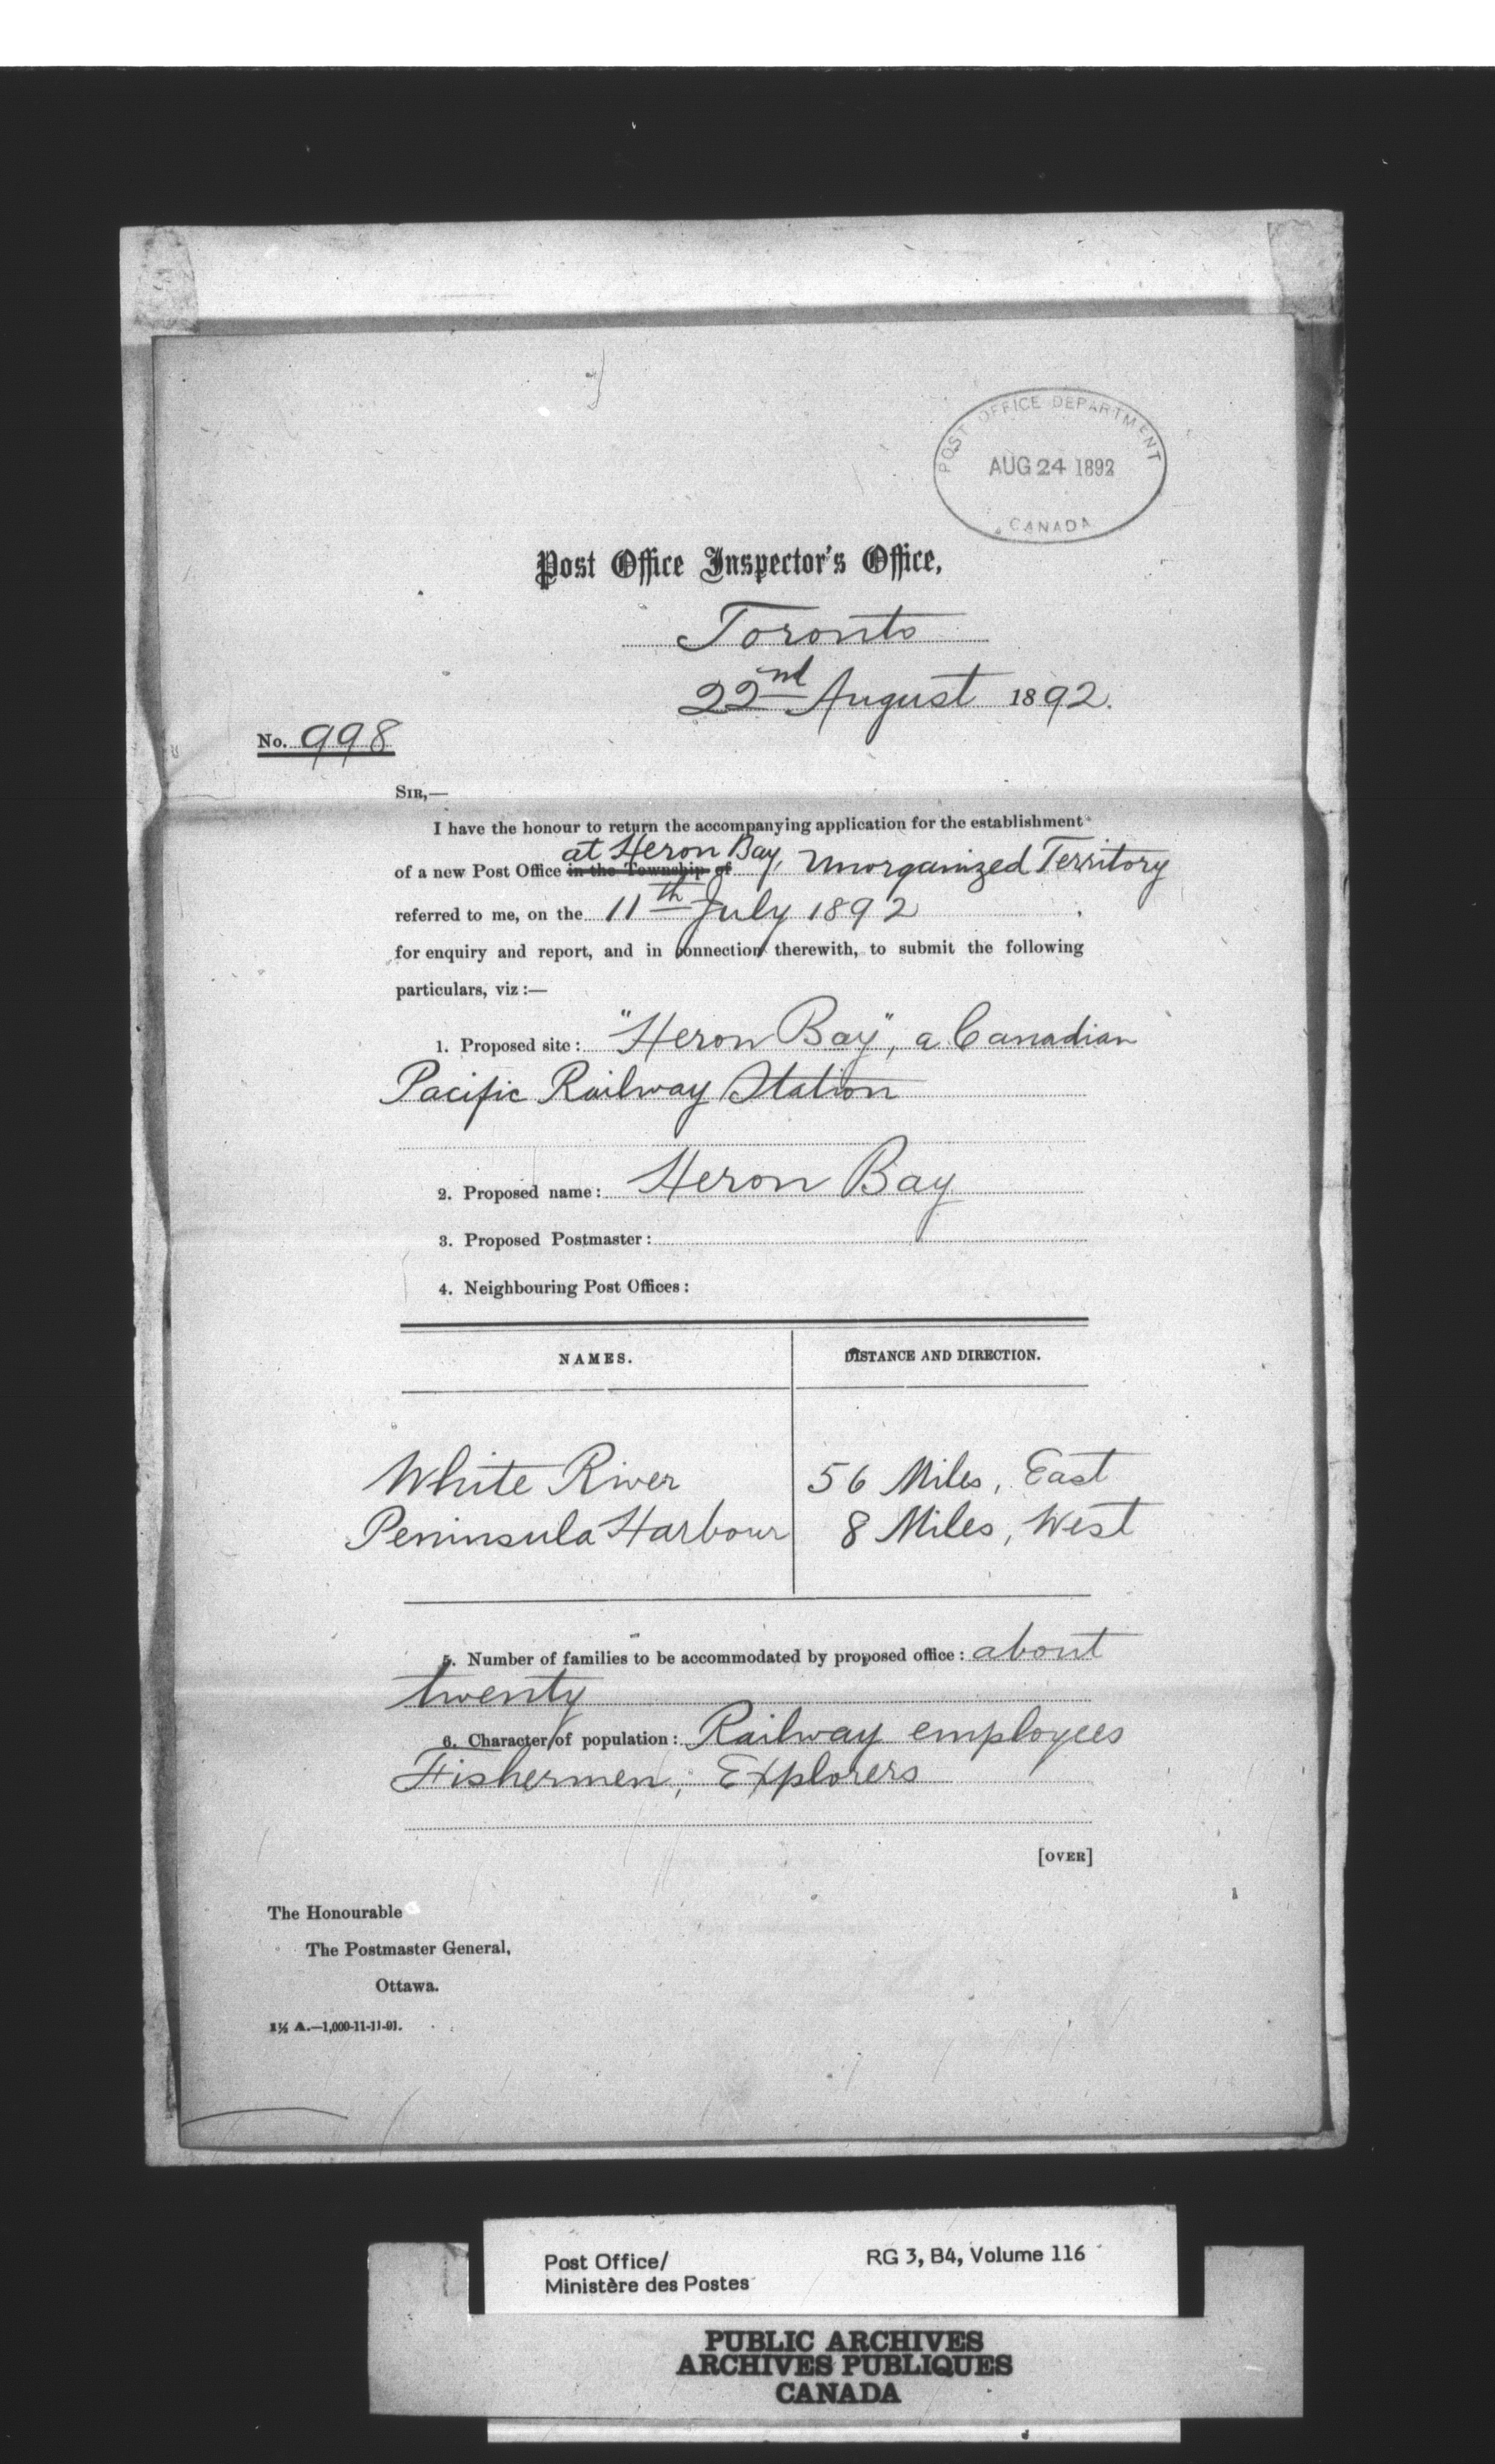 POST OFFICE DEPARTMENT
AUG 24 1892
CANADA
Post Office Inspector's Office,
Toronto
22nd August 1892.
No. 998
SIR,—
I have the honour to return the accompanying application for the establishment
at Heron Bay, Unorganized Territory
of a new Post Office in the Township of
referred to me, on the 11th July 1892
for enquiry and report, and in connection therewith, to submit the following
particulars, viz :—
1. Proposed site : "Heron Bay", a Canadian
Pacific Railway Station
2. Proposed name : Heron Bay
3. Proposed Postmaster :
4. Neighbouring Post Offices :
NAMES. DISTANCE AND DIRECTION.
White River 56 Miles, East
Peninsula Harbour 8 Miles, West
5. Number of families to be accommodated by proposed office : about
twenty
6. Character of population : Railway employees
Fishermen, Explorers
[OVER]
The Honourable
The Postmaster General,
Ottawa.
1½ A.—1,000-11-11-91.
Post Office/ RG 3, B4, Volume 116
Ministère des Postes
PUBLIC ARCHIVES
ARCHIVES PUBLIQUES
CANADA